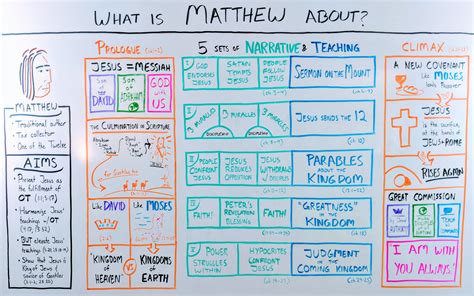 WHAT IS MATTHEW ABOUT?
MATTHEW
- Traditional author
- Tax collector
- One of the Twelve
AIMS
- Present Jesus as
the fulfillment of
OT
- Harmonize Jesus'
teachings w/
OT
- But elevate Jesus'
teachings
- Show that Jesus is
King of Jews &
savior of Gentiles
PROLOGUE
JESUS = MESSIAH
Son of DAVID
Son of ABRAHAM
GOD WITH US
THE CULMINATION OF SCRIPTURE
Like DAVID
Like MOSES
KINGDOM OF HEAVEN
VS
KINGDOMS OF EARTH
5 SETS OF NARRATIVE & TEACHING
I
GOD ENDORSES JESUS
SATAN TEMPTS JESUS
PEOPLE FOLLOW JESUS
SERMON ON THE MOUNT
3 MIRACLES
DISCIPLESHIP
3 MIRACLES
DISCIPLESHIP
3 MIRACLES
JESUS SENDS THE 12
PEOPLE CONFRONT JESUS
JESUS REBUKES OPPOSITION
JESUS WITHDRAWS
PARABLES
ABOUT THE
KINGDOM
FAITH!
PETER'S REVELATION BLESSING
FAITH!
"GREATNESS"
IN THE
KINGDOM
POWER STRUGGLES
JESUS CONFRONTS
HYPOCRITES CONFRONT JESUS
JUDGMENT
OF THE
COMING KINGDOM
CLIMAX
A NEW COVENANT
Like MOSES
JESUS
is the sacrifice,
at the hands
of
JEWS + ROME
RISES AGAIN
GREAT COMMISSION
I AM WITH
YOU ALWAYS!